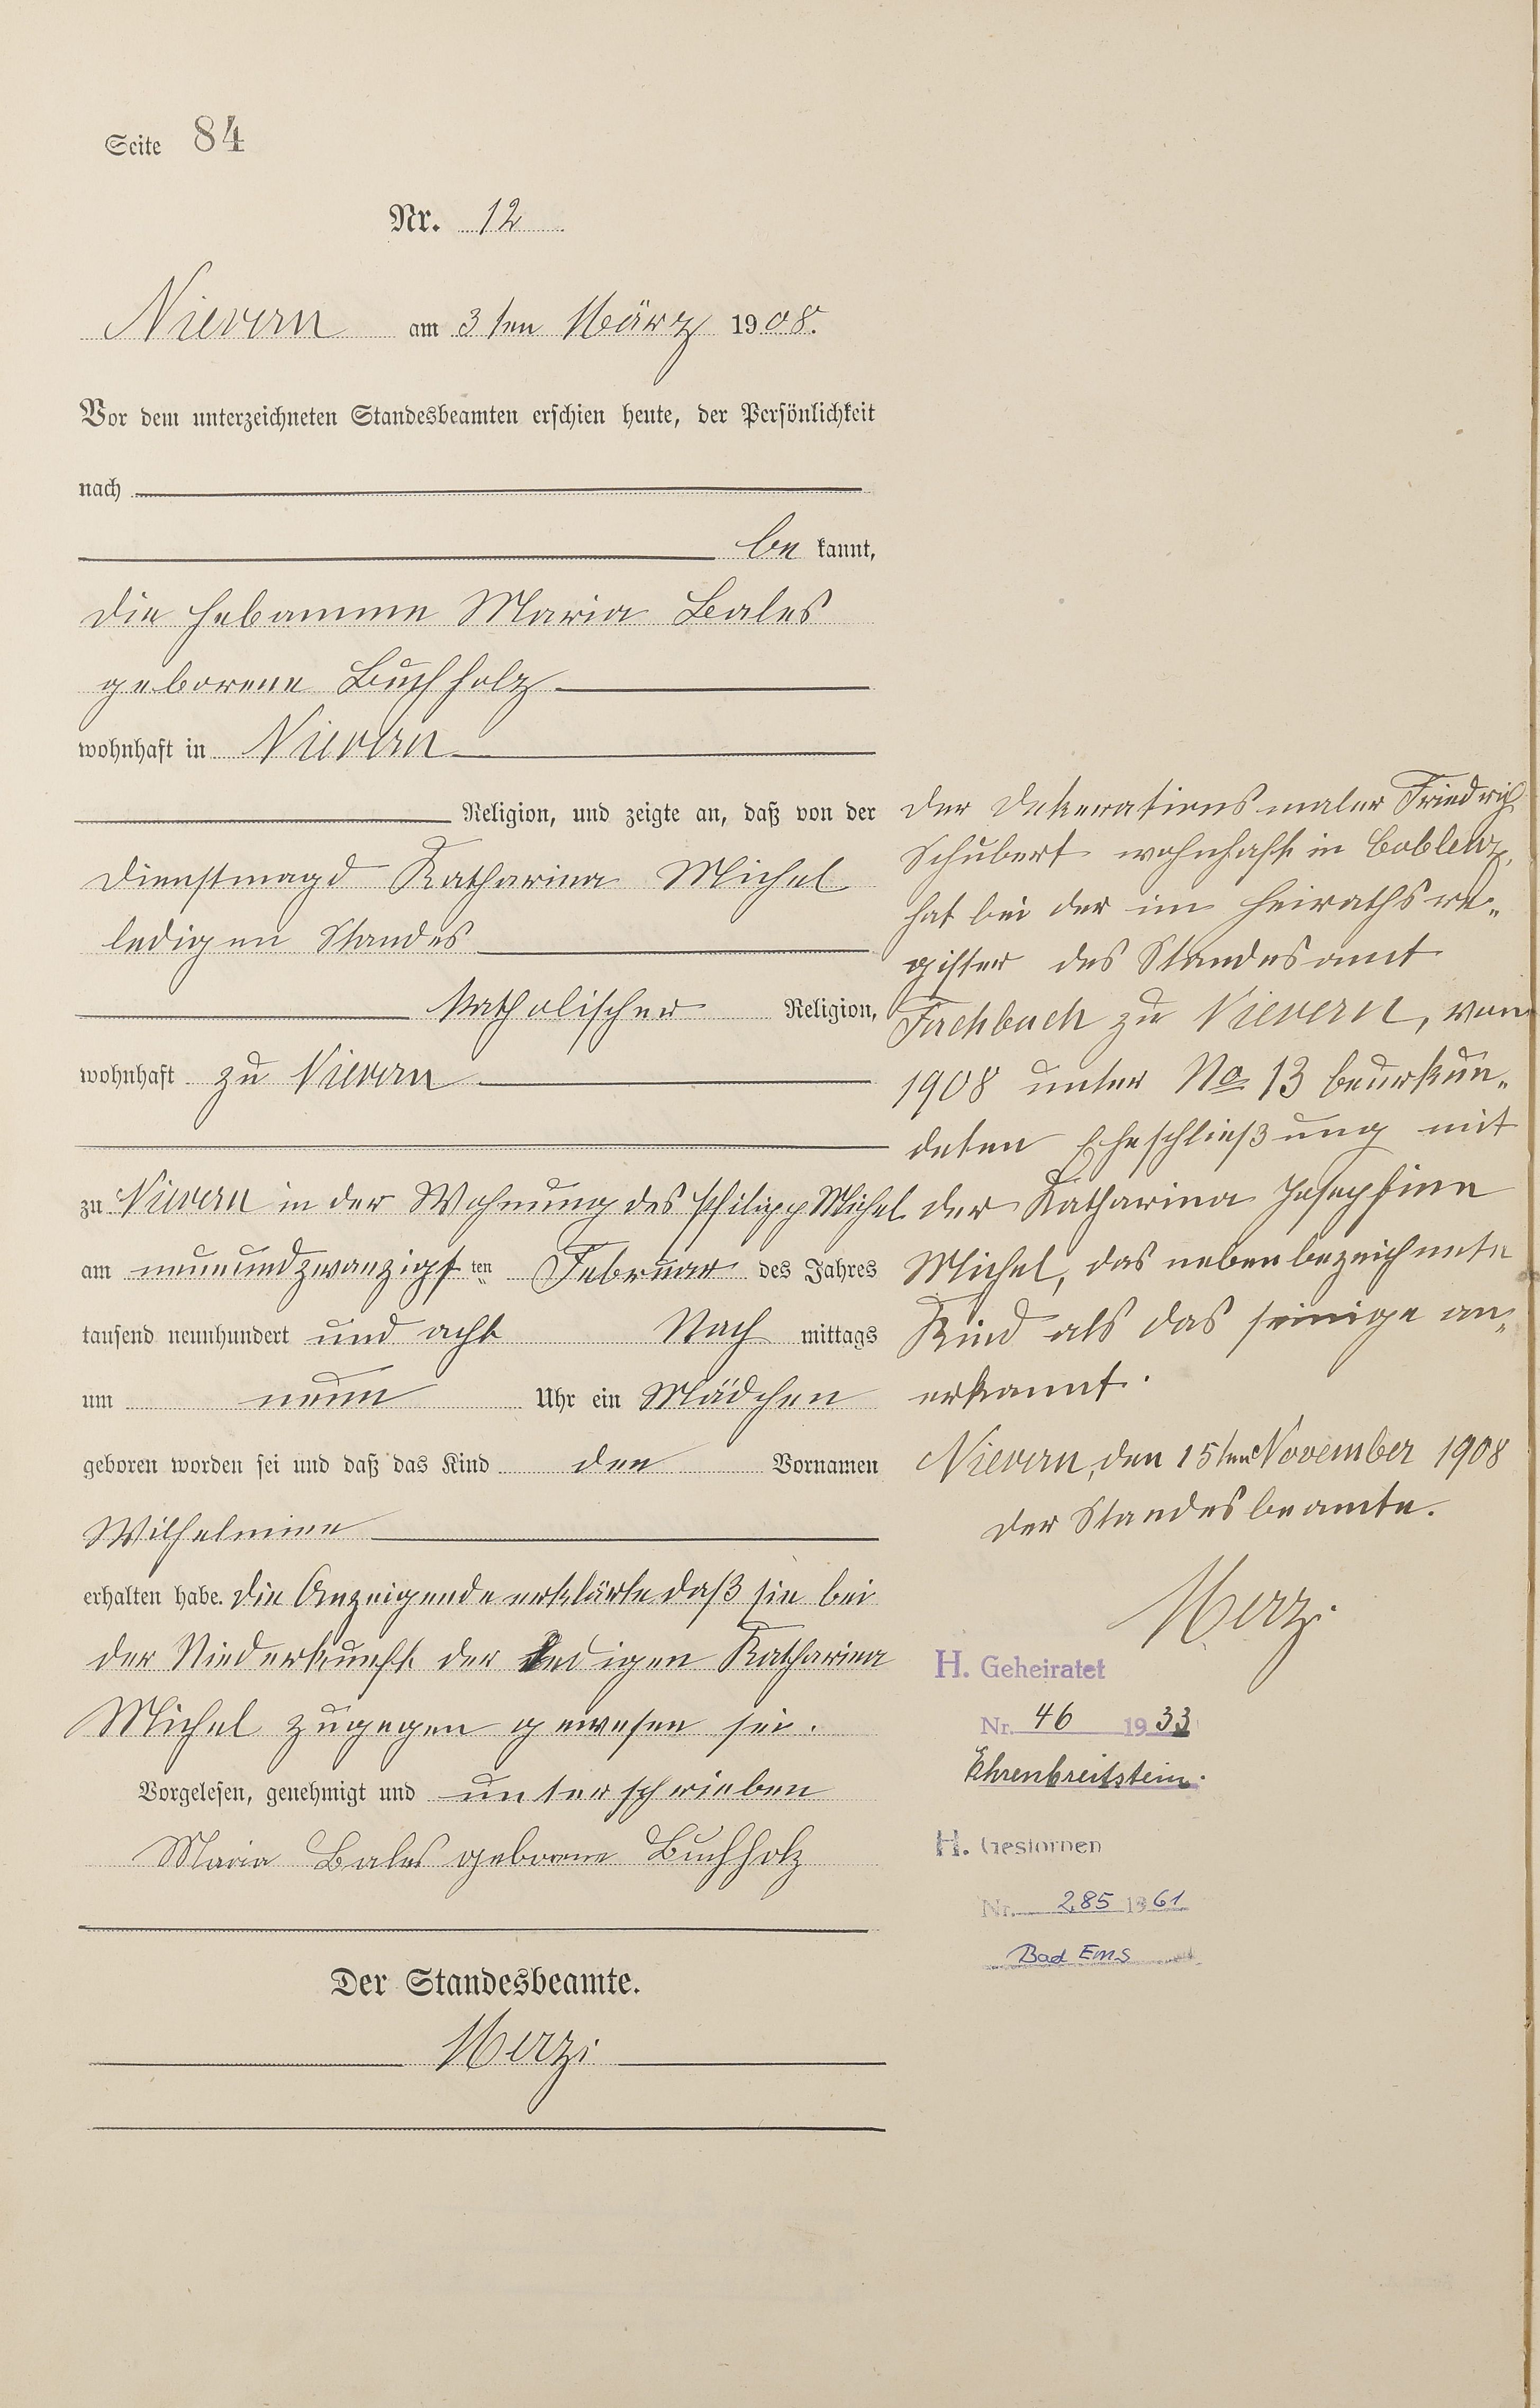 Seite 84
Nr. 12
Nievern am 3ten März 1908.
Vor dem unterzeichneten Standesbeamten erschien heute, der Persönlichkeit
nach
be kannt,
die Hebamme Maria Bales
geborene Buchholz
wohnhaft in Nievern
Religion, und zeigte an, daß von der
Dienstmagd Katharina Michel
ledigen Standes
katholischer Religion,
wohnhaft zu Nievern
zu Nievern in der Wohnung des Philipp Michel
am neunundzwanzigsten Februar des Jahres
tausend neunhundert und acht Nach mittags
um neun Uhr ein Mädchen
geboren worden sei und daß das Kind den Vornamen
Wilhelmine
erhalten habe. Die Anzeigende erklärte daß sie bei
der Niederkunft der ledigen Katharina
Michel zugegen gewesen sei.
Vorgelesen, genehmigt und unterschrieben
Maria Bales geborene Buchholz
Der Standesbeamte.
Merzi
Der Dekorationsmaler Friedrich
Schubert wohnhaft in Coblenz,
hat bei der im Heirathsre-
gister des Standesamt
Fachbach zu Nievern, vom
1908 unter No 13 beurkun-
deten Eheschließung mit
der Katharina Josephine
Michel, das nebenbezeichnete
Kind als das seinige an-
erkannt.
Nievern, den 15ten November 1908
Der Standesbeamte.
Merzi
H. Geheiratet
Nr. 46 1933
Ehrenbreitstein.
H. Gestorben
Nr. 285 1961
Bad Ems